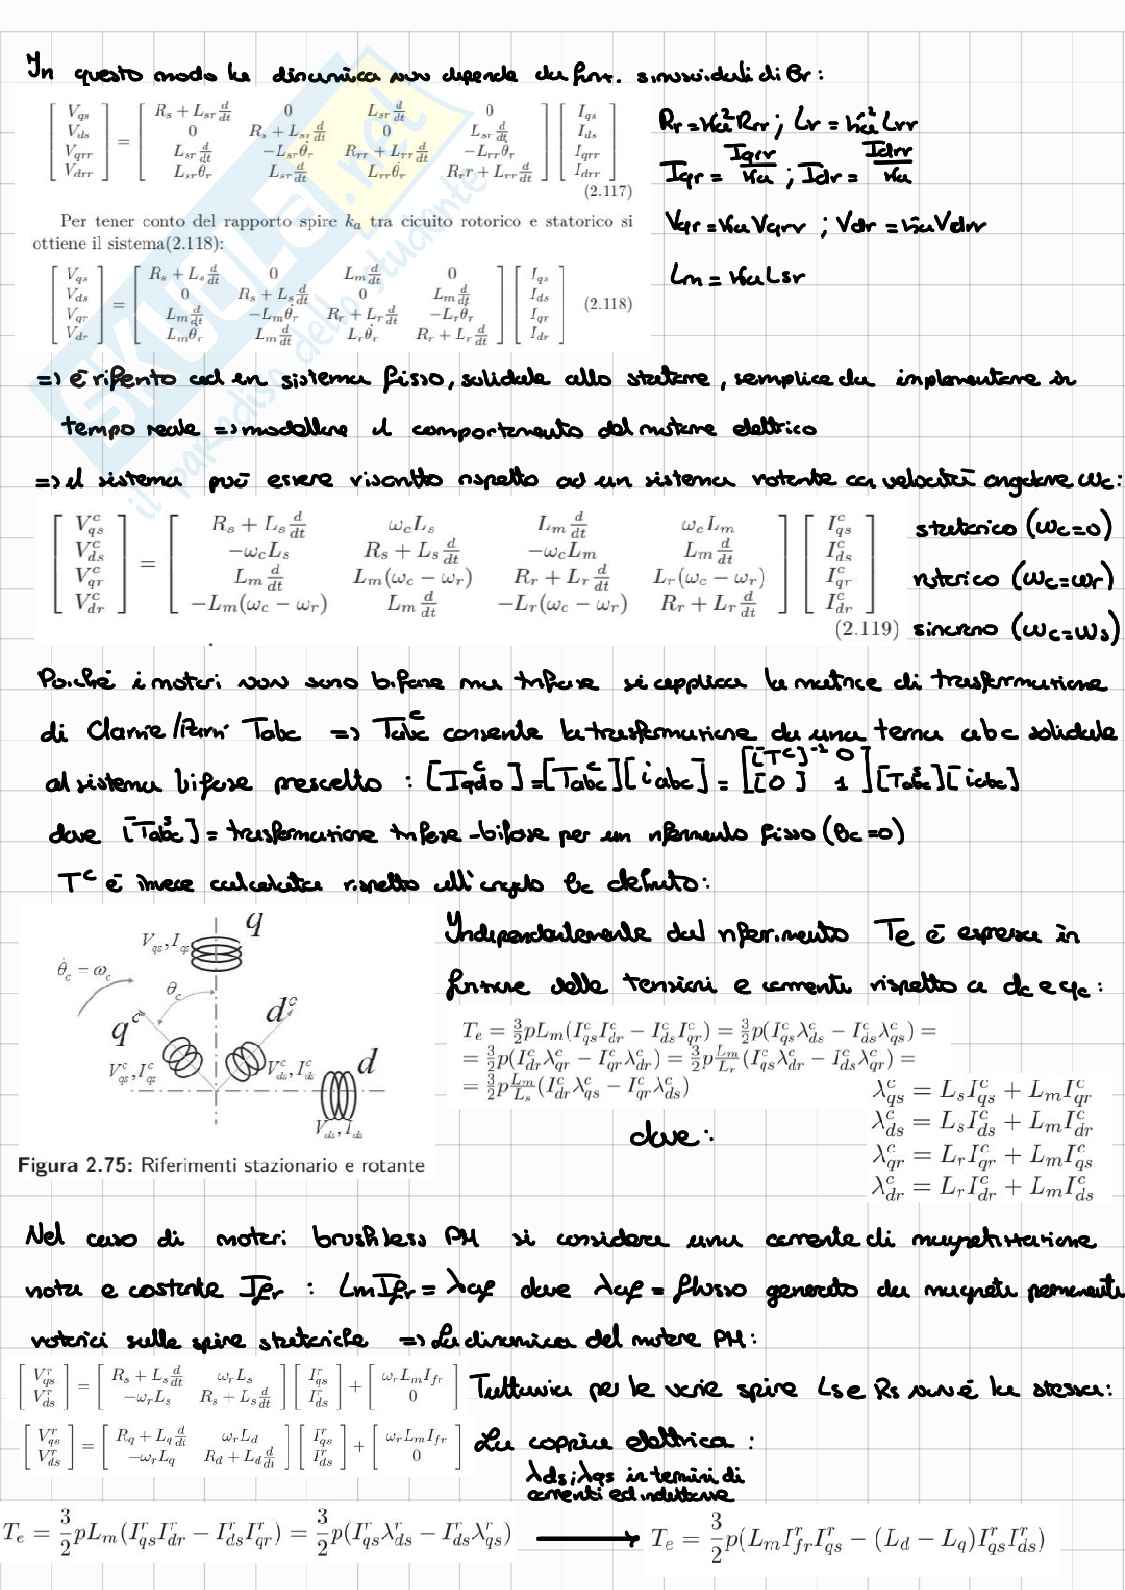 In questo modo la dinamica non dipende da funz. sinusoidali di θr :
[ Vqs Vds Vqrr Vdrr ] = [ Rs + Lsr d/dt 0 Lsr d/dt 0 ] [ Iqs Ids Iqrr Idrr ]
0 Rs + Lsr d/dt 0 Lsr d/dt
Lsr d/dt −Lsr θ̇r Rrr + Lrr d/dt −Lrr θ̇r
Lsr θ̇r Lsr d/dt Lrr θ̇r Rrr + Lrr d/dt
(2.117)
Rr = ka² Rrr ; Lr = ka² Lrr
Iqr = Iqrr/ka ; Idr = Idrr/ka
Vqr = ka Vqrr ; Vdr = ka Vdrr
Lm = ka Lsr
Per tener conto del rapporto spire ka tra cicuito rotorico e statorico si
ottiene il sistema(2.118):
[ Vqs Vds Vqr Vdr ] = [ Rs + Ls d/dt 0 Lm d/dt 0 ] [ Iqs Ids Iqr Idr ]
0 Rs + Ls d/dt 0 Lm d/dt
Lm d/dt −Lm θ̇r Rr + Lr d/dt −Lr θ̇r
Lm θ̇r Lm d/dt Lr θ̇r Rr + Lr d/dt
(2.118)
SKUOLA.net
il paradiso dello studente
=> è riferito ad un sistema fisso, solidale allo statore, semplice da implementare in
tempo reale => modellare il comportamento del motore elettrico
=> il sistema può essere riscritto rispetto ad un sistema rotante con velocità angolare ωc:
[ Vqs^c Vds^c Vqr^c Vdr^c ] = [ Rs + Ls d/dt ωcLs Lm d/dt ωcLm ] [ Iqs^c Ids^c Iqr^c Idr^c ]
−ωcLs Rs + Ls d/dt −ωcLm Lm d/dt
Lm d/dt Lm(ωc − ωr) Rr + Lr d/dt Lr(ωc − ωr)
−Lm(ωc − ωr) Lm d/dt −Lr(ωc − ωr) Rr + Lr d/dt
(2.119)
statorico (ωc=0)
rotorico (ωc=ωr)
sincrono (ωc=ωs)
Poiché i motori non sono bifase ma trifase si applica la matrice di trasformazione
di Clarke/Park Tabc => Tabc^c consente la trasformazione da una terna abc solidale
al sistema bifase prescelto : [Iqdo^c] = [Tabc^c][iabc] = [ [T^c]^-1 0 [0] 1 ] [Tabc^s][iabc]
dove [Tabc^s] = trasformazione trifase-bifase per un riferimento fisso (θc=0)
T^c è invece calcolata rispetto all'angolo θc definito:
q
Vqs, Iqs
θ̇c = ωc
θc
q^c
d^c
Vqs^c, Iqs^c
Vds^c, Ids^c
d
Vds, Ids
Figura 2.75: Riferimenti stazionario e rotante
Indipendentemente dal riferimento Te è espressa in
funzione delle tensioni e correnti rispetto a dc e qc :
Te = 3/2 pLm(Iqs^c Idr^c − Ids^c Iqr^c) = 3/2 p(Iqs^c λds^c − Ids^c λqs^c) =
= 3/2 p(Idr^c λqr^c − Iqr^c λdr^c) = 3/2 p Lm/Lr (Iqs^c λdr^c − Ids^c λqr^c) =
= 3/2 p Lm/Ls (Idr^c λqs^c − Iqr^c λds^c)
dove :
λqs^c = LsIqs^c + LmIqr^c
λds^c = LsIds^c + LmIdr^c
λqr^c = LrIqr^c + LmIqs^c
λdr^c = LrIdr^c + LmIds^c
Nel caso di motori brushless PM si considera una corrente di magnetizzazione
nota e costante Ifr : LmIfr = λaf dove λaf = flusso generato da magneti permanenti
rotorici sulle spire statoriche => La dinamica del motore PM:
[ Vqs^r Vds^r ] = [ Rs + Ls d/dt ωrLs ] [ Iqs^r Ids^r ] + [ ωrLmIfr 0 ]
−ωrLs Rs + Ls d/dt
Tuttavia per le varie spire Ls e Rs non è la stessa:
[ Vqs^r Vds^r ] = [ Rq + Lq d/dt ωrLd ] [ Iqs^r Ids^r ] + [ ωrLmIfr 0 ]
−ωrLq Rd + Ld d/dt
La coppia elettrica :
λds ; λqs in termini di
correnti ed induttanze
Te = 3/2 pLm(Iqs^r Idr^r − Ids^r Iqr^r) = 3/2 p(Iqs^r λds^r − Ids^r λqs^r) → Te = 3/2 p(LmIfr^r Iqs^r − (Ld − Lq)Iqs^r Ids^r)